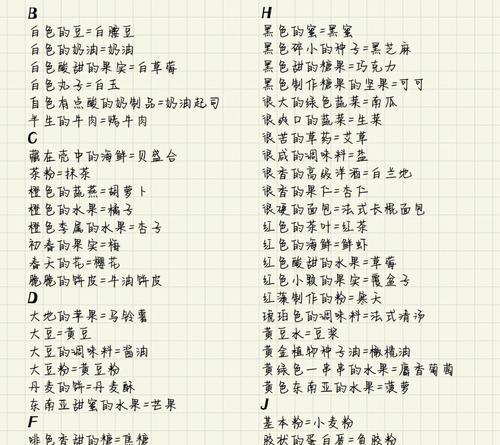 B
白色的豆=白腰豆
白色的奶油=奶油
白色酸甜的果实=白草莓
白色丸子=白玉
白色有点酸的奶制品=奶油起司
半生的牛肉=鸭牛肉
C
藏在壳中的海鲜=贝盛合
茶粉=抹茶
橙色的蔬燕=胡萝卜
橙色的水果=橘子
橙色季属的水果=杏子
初春的果实=梅
春天的花=樱花
脆脆的饼皮=牛油饼皮
D
大地的苹果=马铃薯
大豆=黄豆
大豆的调味料=酱油
大豆粉=黄豆粉
丹麦的饼=丹麦酥
东南亚甜蜜的水果=芒果
F
啡色香甜的糖=焦糖
H
黑色的蜜=黑蜜
黑色碎小的种子=黑芝麻
黑色甜的糖果=巧克力
黑色制作糖果的坚果=可可
很大的绿色蔬菜=南瓜
很爽口的蔬菜=生菜
很苦的草药=艾草
很咸的调味料=盐
很香的高级洋酒=白兰地
很香的果仁=杏仁
很硬的面包=法式长棍面包
红色的茶叶=红茶
红色的海鲜=鲜虾
红色酸甜的水果=草莓
红色小颗的果实=覆盆子
红藻制作的粉=柴天
琥珀色的调味料=法式清汤
黄豆水=豆浆
黄金植物种子油=橄榄油
黄绿色一串串的水果=麝香葡萄
黄色东南亚的水果=菠萝
J
基本粉=小麦粉
胶状的蛋白质=鱼胶粉